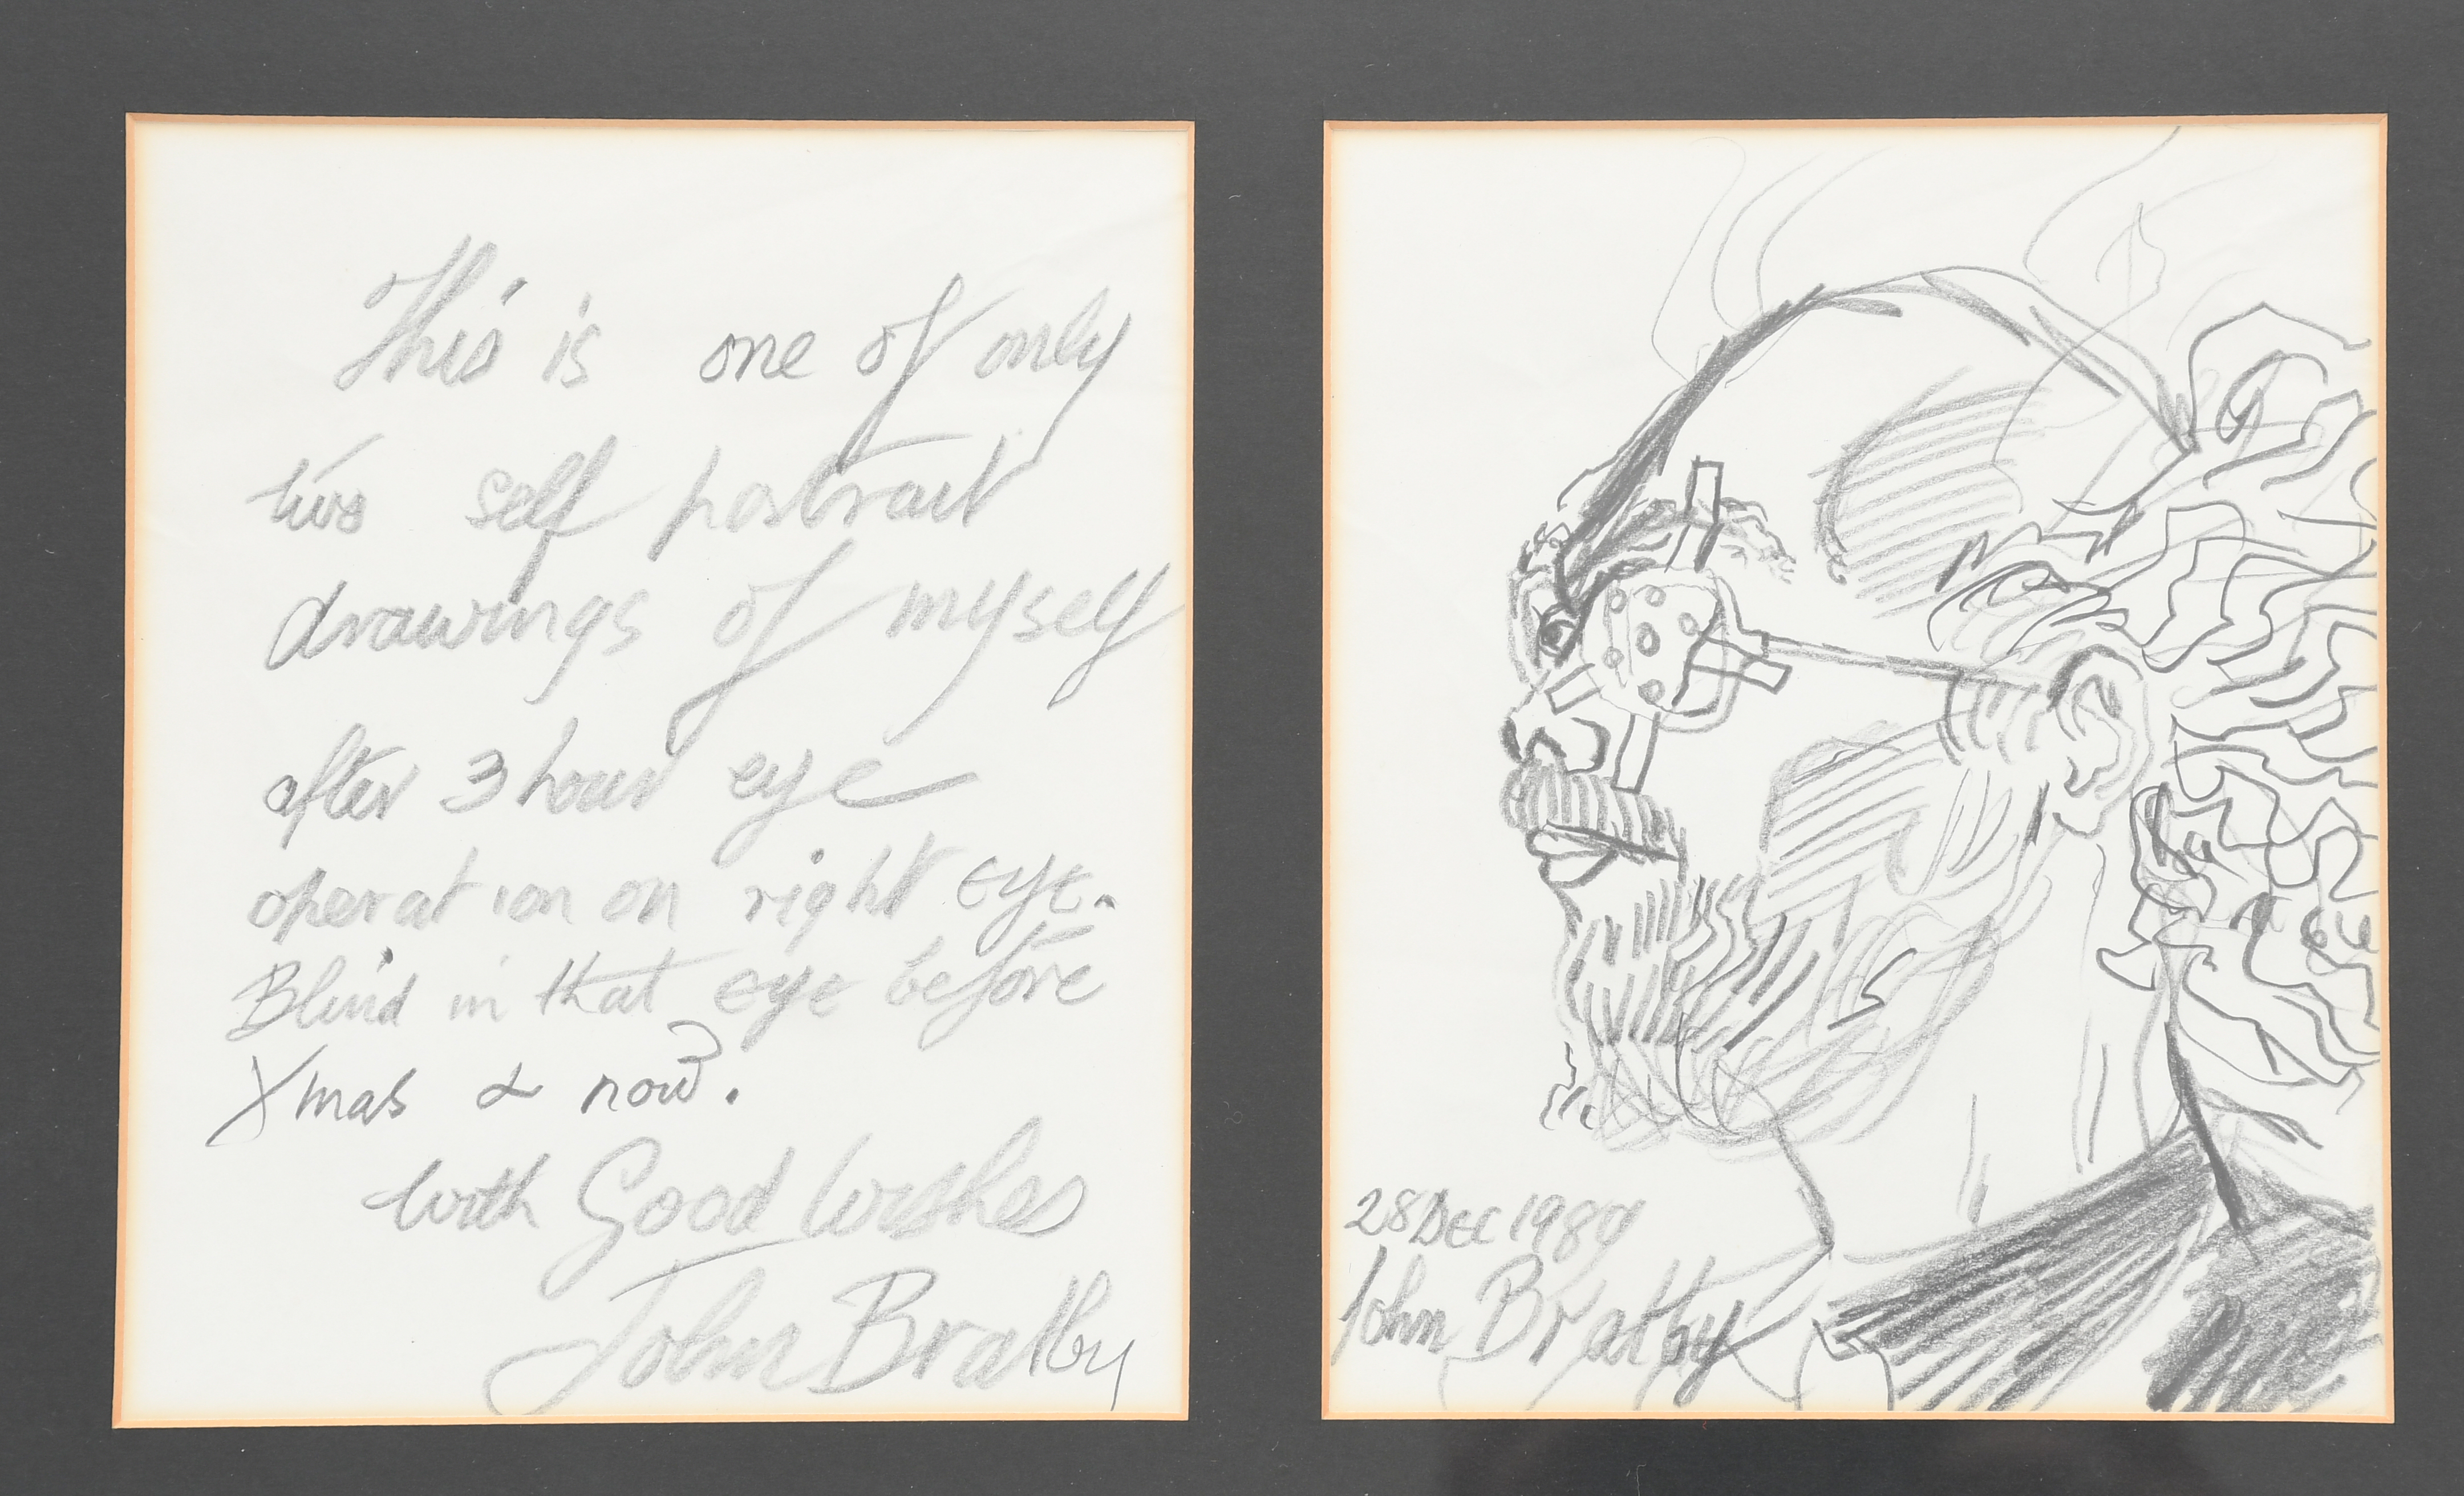 This is one of only
two self portrait
drawings of myself
after 3 hour eye
operation on right eye.
Blind in that eye before
Xmas & now.
with Good Wishes
John Bratby
28 DEC 1989
John Bratby